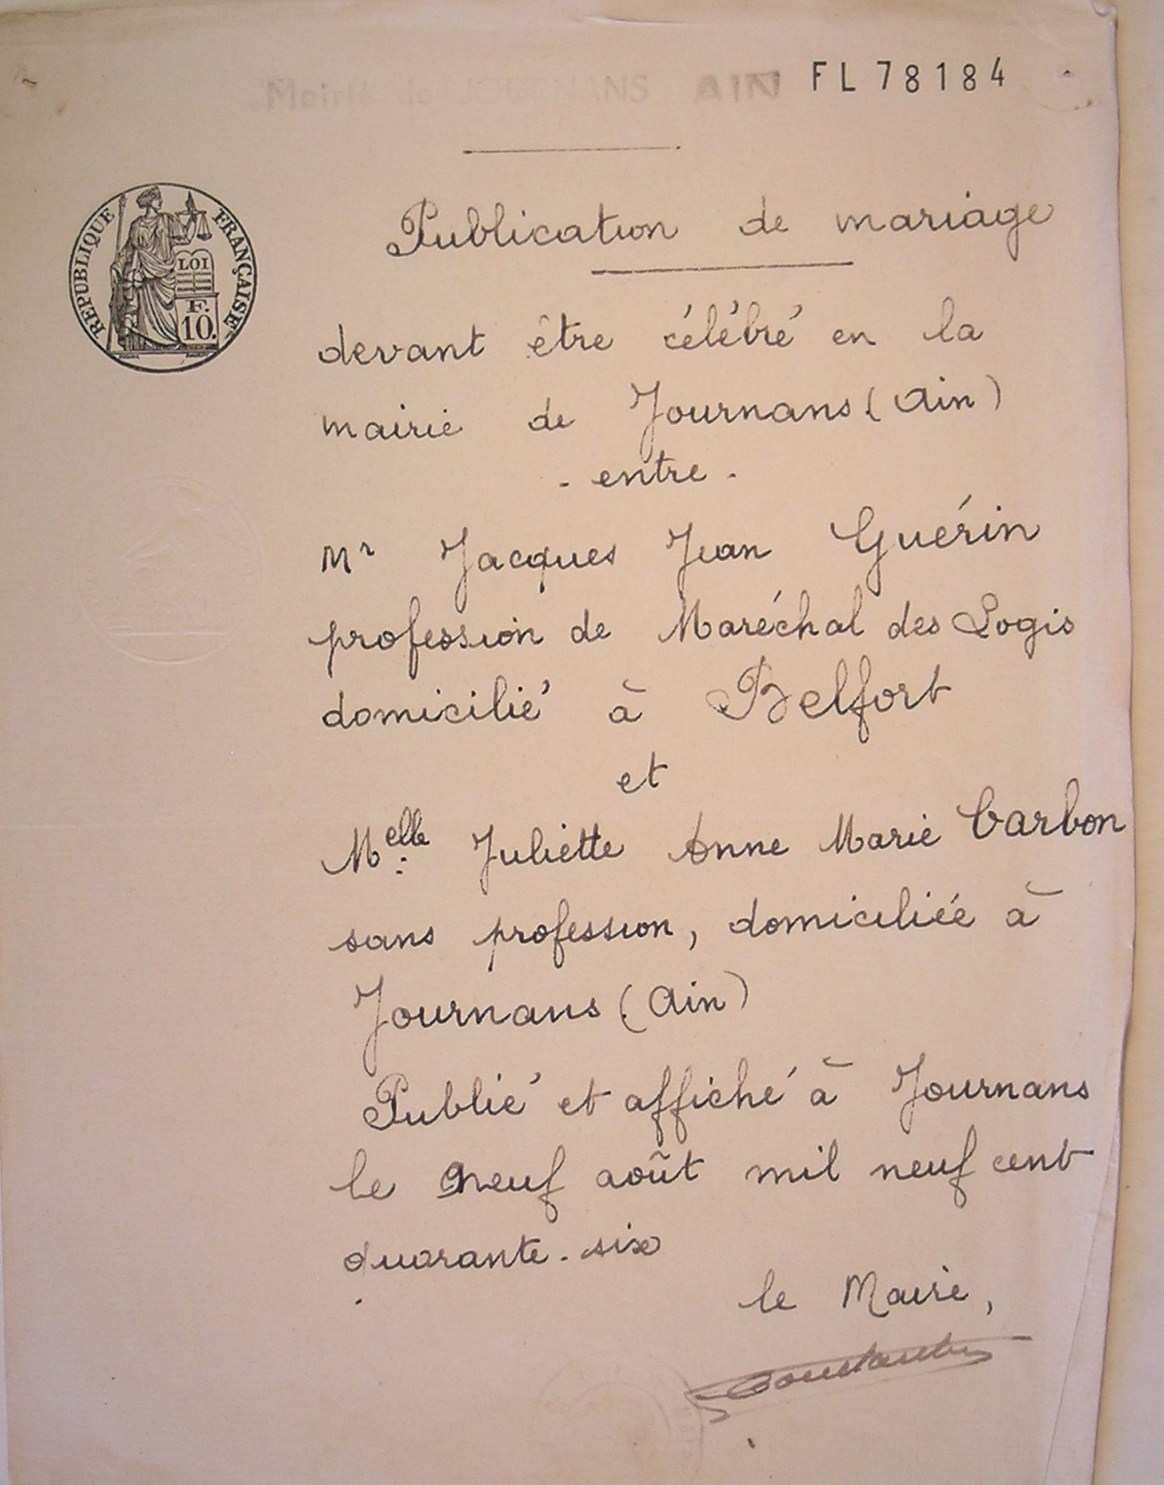 Mairie de JOURNANS AIN FL 78184
RÉPUBLIQUE FRANÇAISE
LOI
F.
10.
Publication de mariage
devant être célébré en la
mairie de Journans (Ain)
- entre -
Mr Jacques Jean Guérin
profession de Maréchal des Logis
domicilié à Belfort
et
Melle Juliette Anne Marie Carbon
sans profession, domiciliée à
Journans (Ain)
Publié et affiché à Journans
le neuf août mil neuf cent
quarante-six
le Maire,